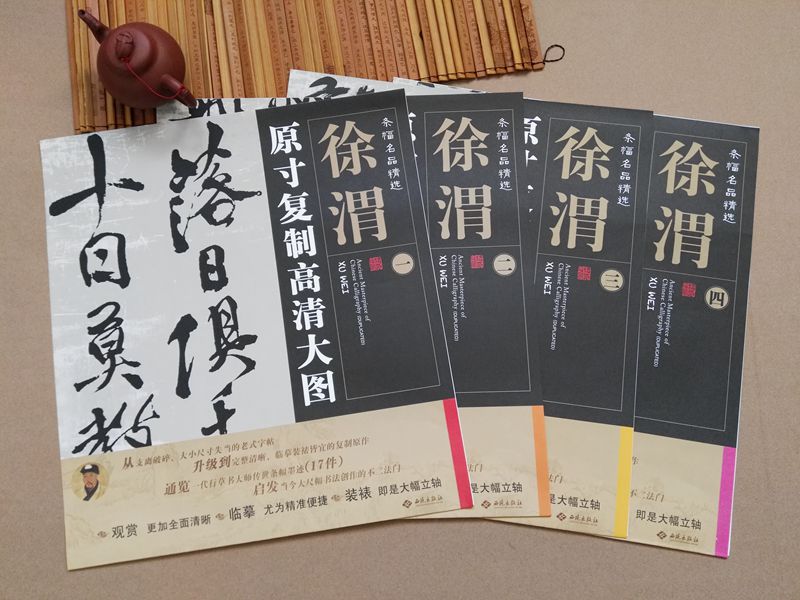 落日俱千
十日莫教
原寸复制高清大图
条幅名品精选
徐渭
一
Ancient Masterpiece of
Chinese Calligraphy (DUPLICATED)
XU WEI
从支离破碎、大小尺寸失当的老式字帖
升级到完整清晰、临摹装裱皆宜的复制原作
通览一代行草书大师传世条幅墨迹(17件)
启发当今大尺幅书法创作的不二法门
观赏 更加全面清晰 临摹 尤为精准便捷 装裱 即是大幅立轴
西泠印社出版社
条幅名品精选
徐渭
二
Ancient Masterpiece of
Chinese Calligraphy (DUPLICATED)
XU WEI
即是大幅立轴
西泠印社出版社
条幅名品精选
徐渭
三
Ancient Masterpiece of
Chinese Calligraphy (DUPLICATED)
XU WEI
不二法门
即是大幅立轴
西泠印社出版社
条幅名品精选
徐渭
四
Ancient Masterpiece of
Chinese Calligraphy (DUPLICATED)
XU WEI
件)
不二法门
即是大幅立轴
西泠印社出版社